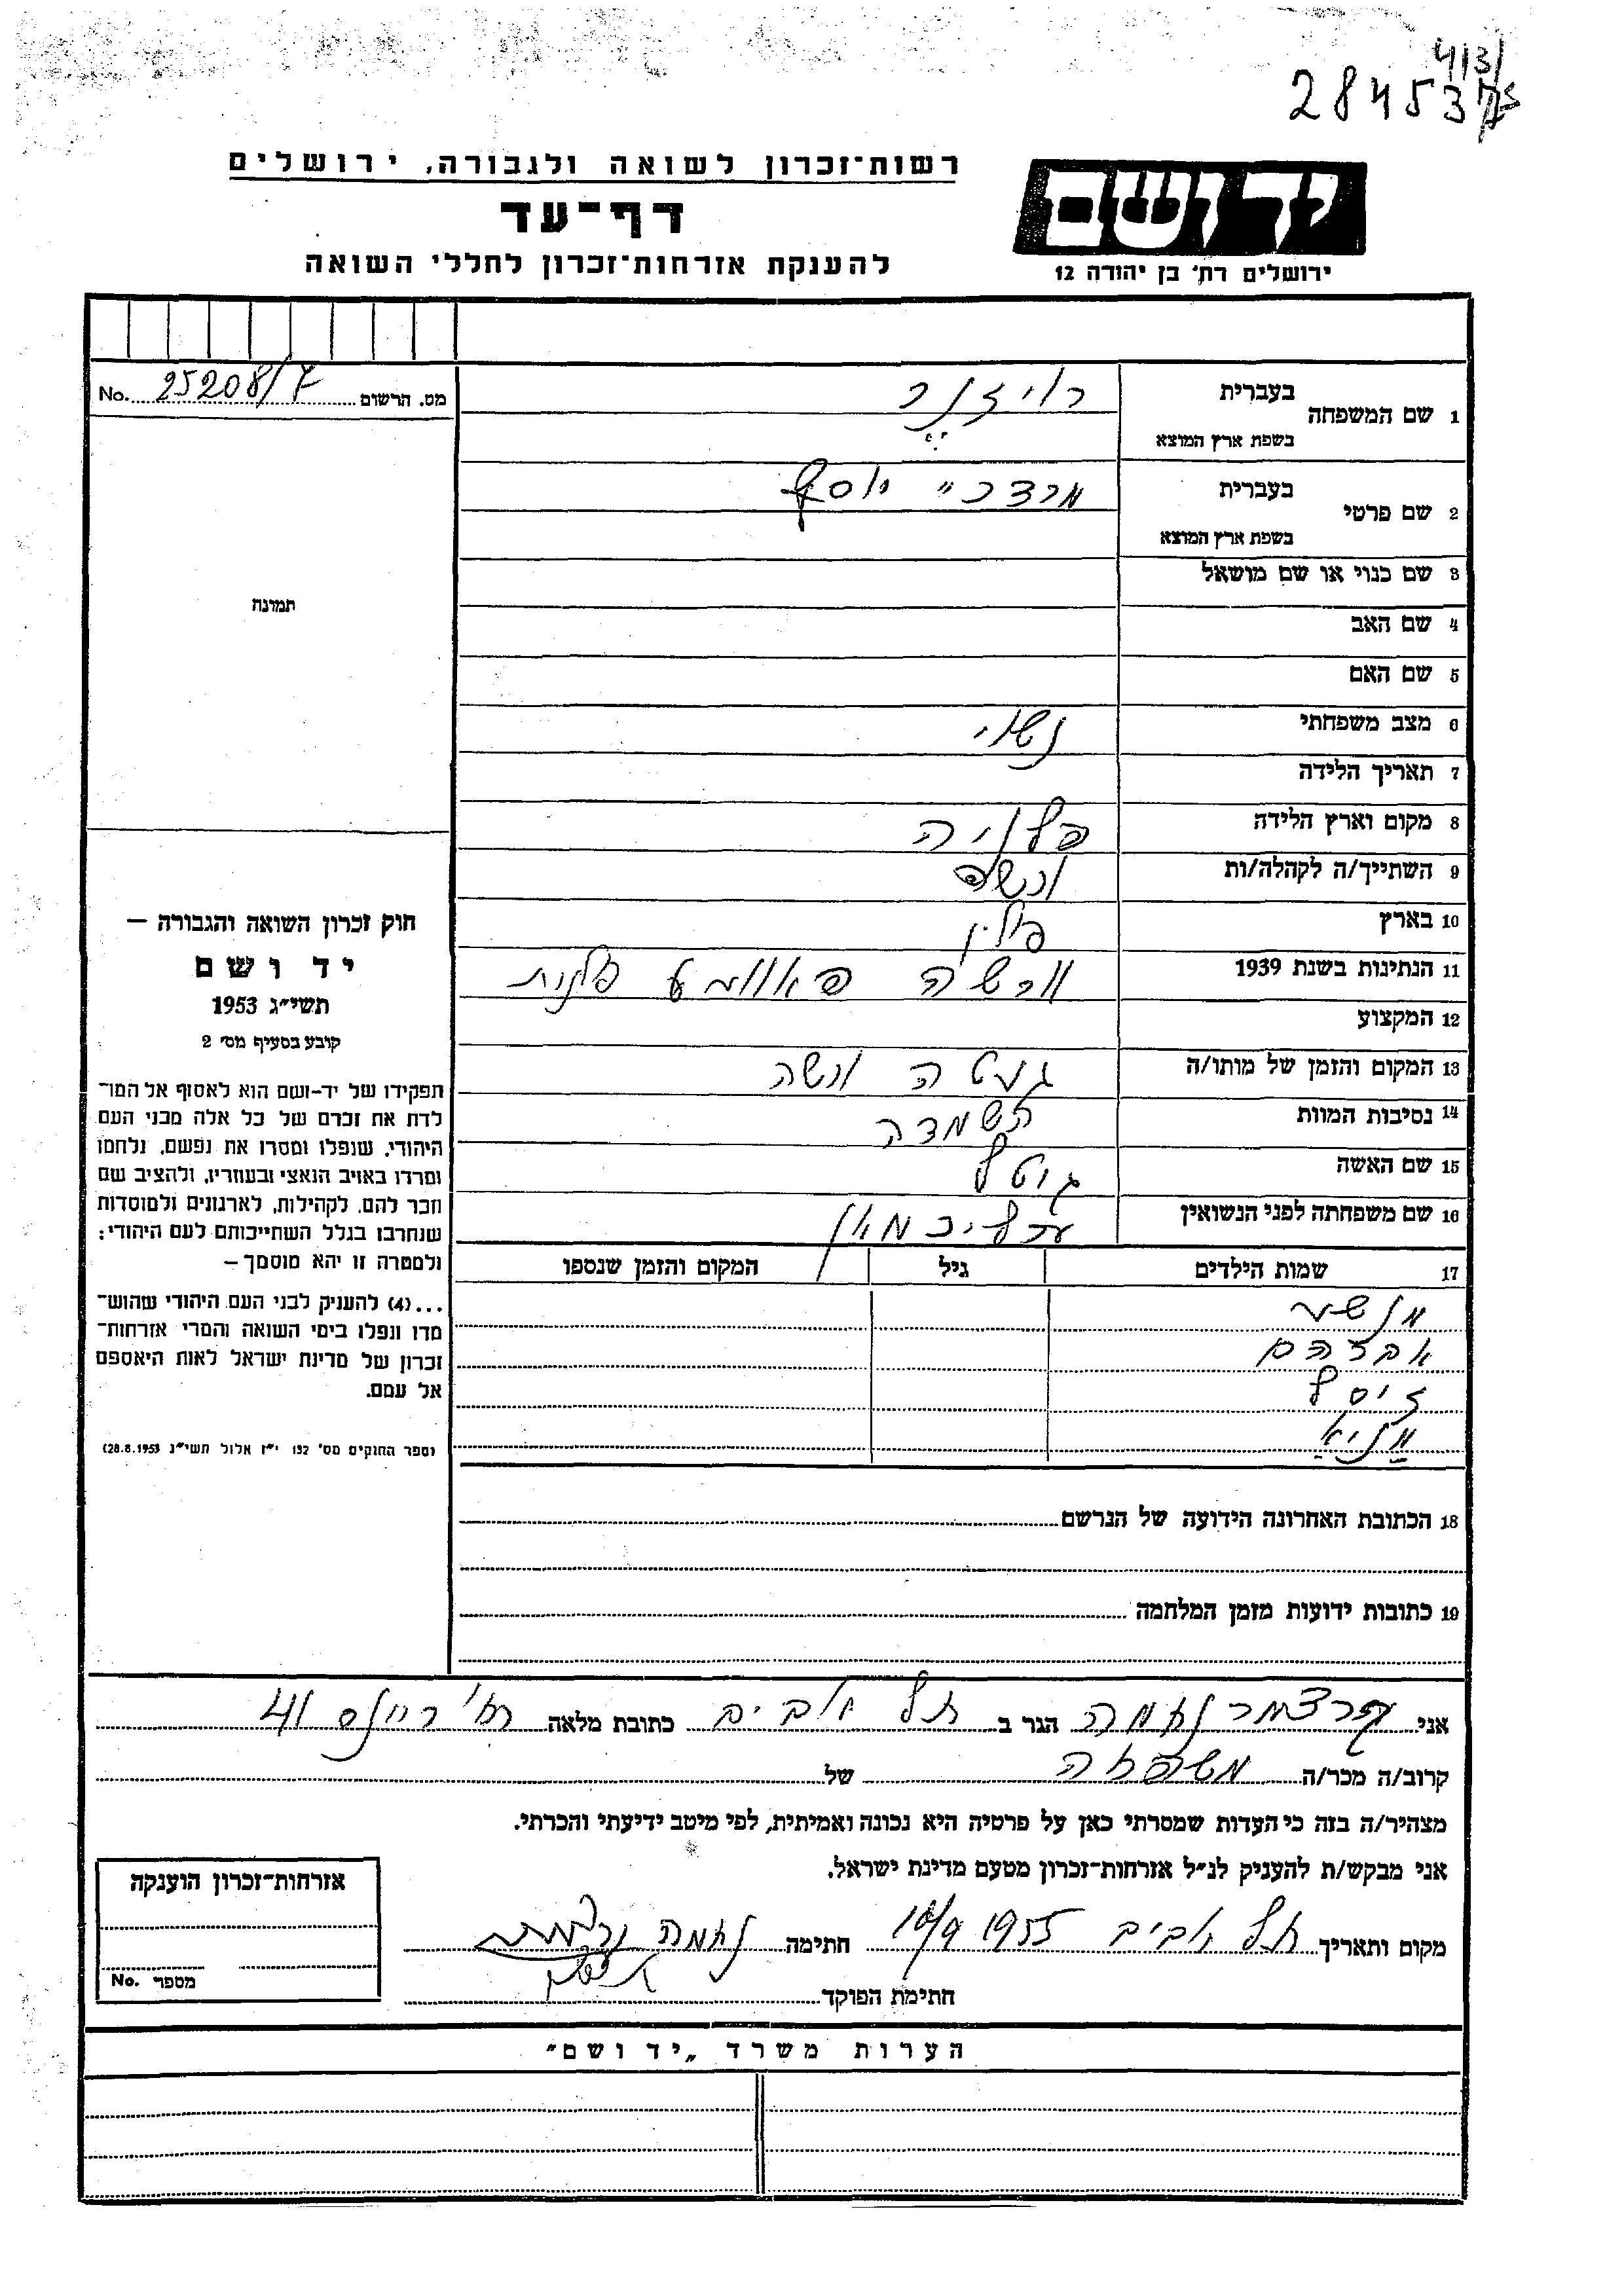 413/
284537
רשות־זכרון לשואה ולגבורה, ירושלים
יד ושם
דף־עד
להענקת אזרחות־זכרון לחללי השואה
ירושלים רח' בן יהודה 12
מס. הרשום No. 25208/7
1 שם המשפחה בעברית רויזנר
בשפת ארץ המוצא
2 שם פרטי בעברית מרדכי יוסף
בשפת ארץ המוצא
תמונה
3 שם כנוי או שם מושאל
4 שם האב
5 שם האם
6 מצב משפחתי נשוי
7 תאריך הלידה
8 מקום וארץ הלידה
9 השתייך/ה לקהלה/ות
10 בארץ פולין
11 הנתינות בשנת 1939
12 המקצוע
13 המקום והזמן של מותו/ה
14 נסיבות המוות השמדה
15 שם האשה גיטל
16 שם משפחתה לפני הנשואין
17 שמות הילדים גיל המקום והזמן שנספו
אברהם
חוק זכרון השואה והגבורה –
יד ושם
תשי״ג 1953
קובע בסעיף מס' 2
תפקידו של יד-ושם הוא לאסוף אל המו־
לדת את זכרם של כל אלה מבני העם
היהודי, שנפלו ומסרו את נפשם, נלחמו
ומרדו באויב הנאצי ובעוזריו, ולהציב שם
וזכר להם, לקהילות, לארגונים ולמוסדות
שנחרבו בגלל השתייכותם לעם היהודי;
ולמטרה זו יהא מוסמך –
...(4) להעניק לבני העם היהודי שהוש־
מדו ונפלו בימי השואה והמרי אזרחות־
זכרון של מדינת ישראל לאות היאספם
אל עמם.
(ספר החוקים מס' 132 י״ז אלול תשי״ג 28.8.1953)
18 הכתובת האחרונה הידועה של הנרשם
19 כתובות ידועות מזמן המלחמה
אני נחמה הגר ב תל אביב כתובת מלאה רח' 41
קרוב/ה מכר/ה משפחה של
מצהיר/ה בזה כי העדות שמסרתי כאן על פרטיה היא נכונה ואמיתית, לפי מיטב ידיעתי והכרתי.
אני מבקש/ת להעניק לנ״ל אזרחות־זכרון מטעם מדינת ישראל.
מקום ותאריך תל אביב 1955 חתימה נחמה
חתימת הפוקד
אזרחות־זכרון הוענקה
מספר No.
הערות משרד „יד ושם״